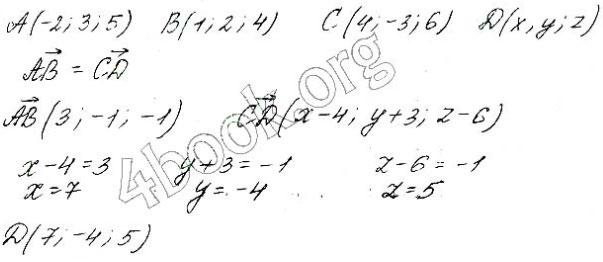 A(-2; 3; 5) B(1; 2; 4) C(4; -3; 6) D(x; y; z)
A⃗B⃗ = C⃗D⃗
A⃗B⃗(3; -1; -1) C⃗D⃗(x-4; y+3; z-6)
x-4=3 y+3=-1 z-6=-1
x=7 y=-4 z=5
D(7; -4; 5)
4book.org